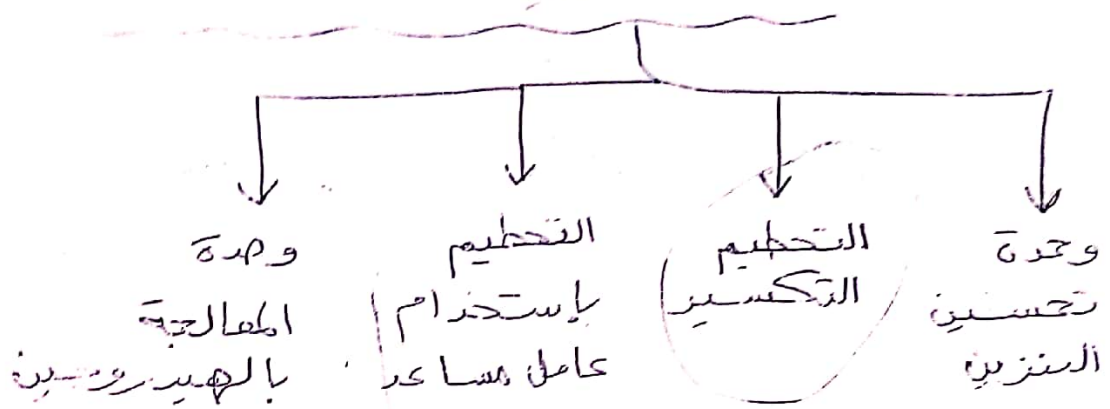 وحدة
تحسين
البنزين
التحطيم
التكسير
التحطيم
بإستخدام
عامل مساعد
وحدة
المعالجة
بالهيدروجين